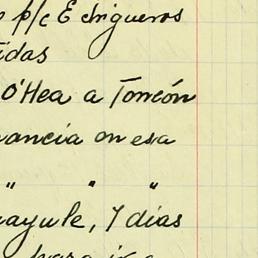 p/c E chigueros
idas
O'Hea a Torreón
ancia en esa
" " "
uayule, 7 dias